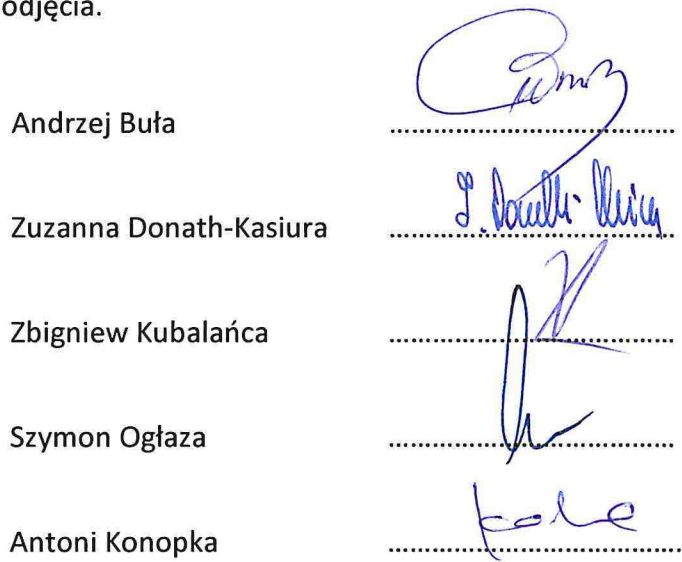 odjęcia.
Andrzej Buła
Zuzanna Donath-Kasiura
Zbigniew Kubalańca
Szymon Ogłaza
Antoni Konopka